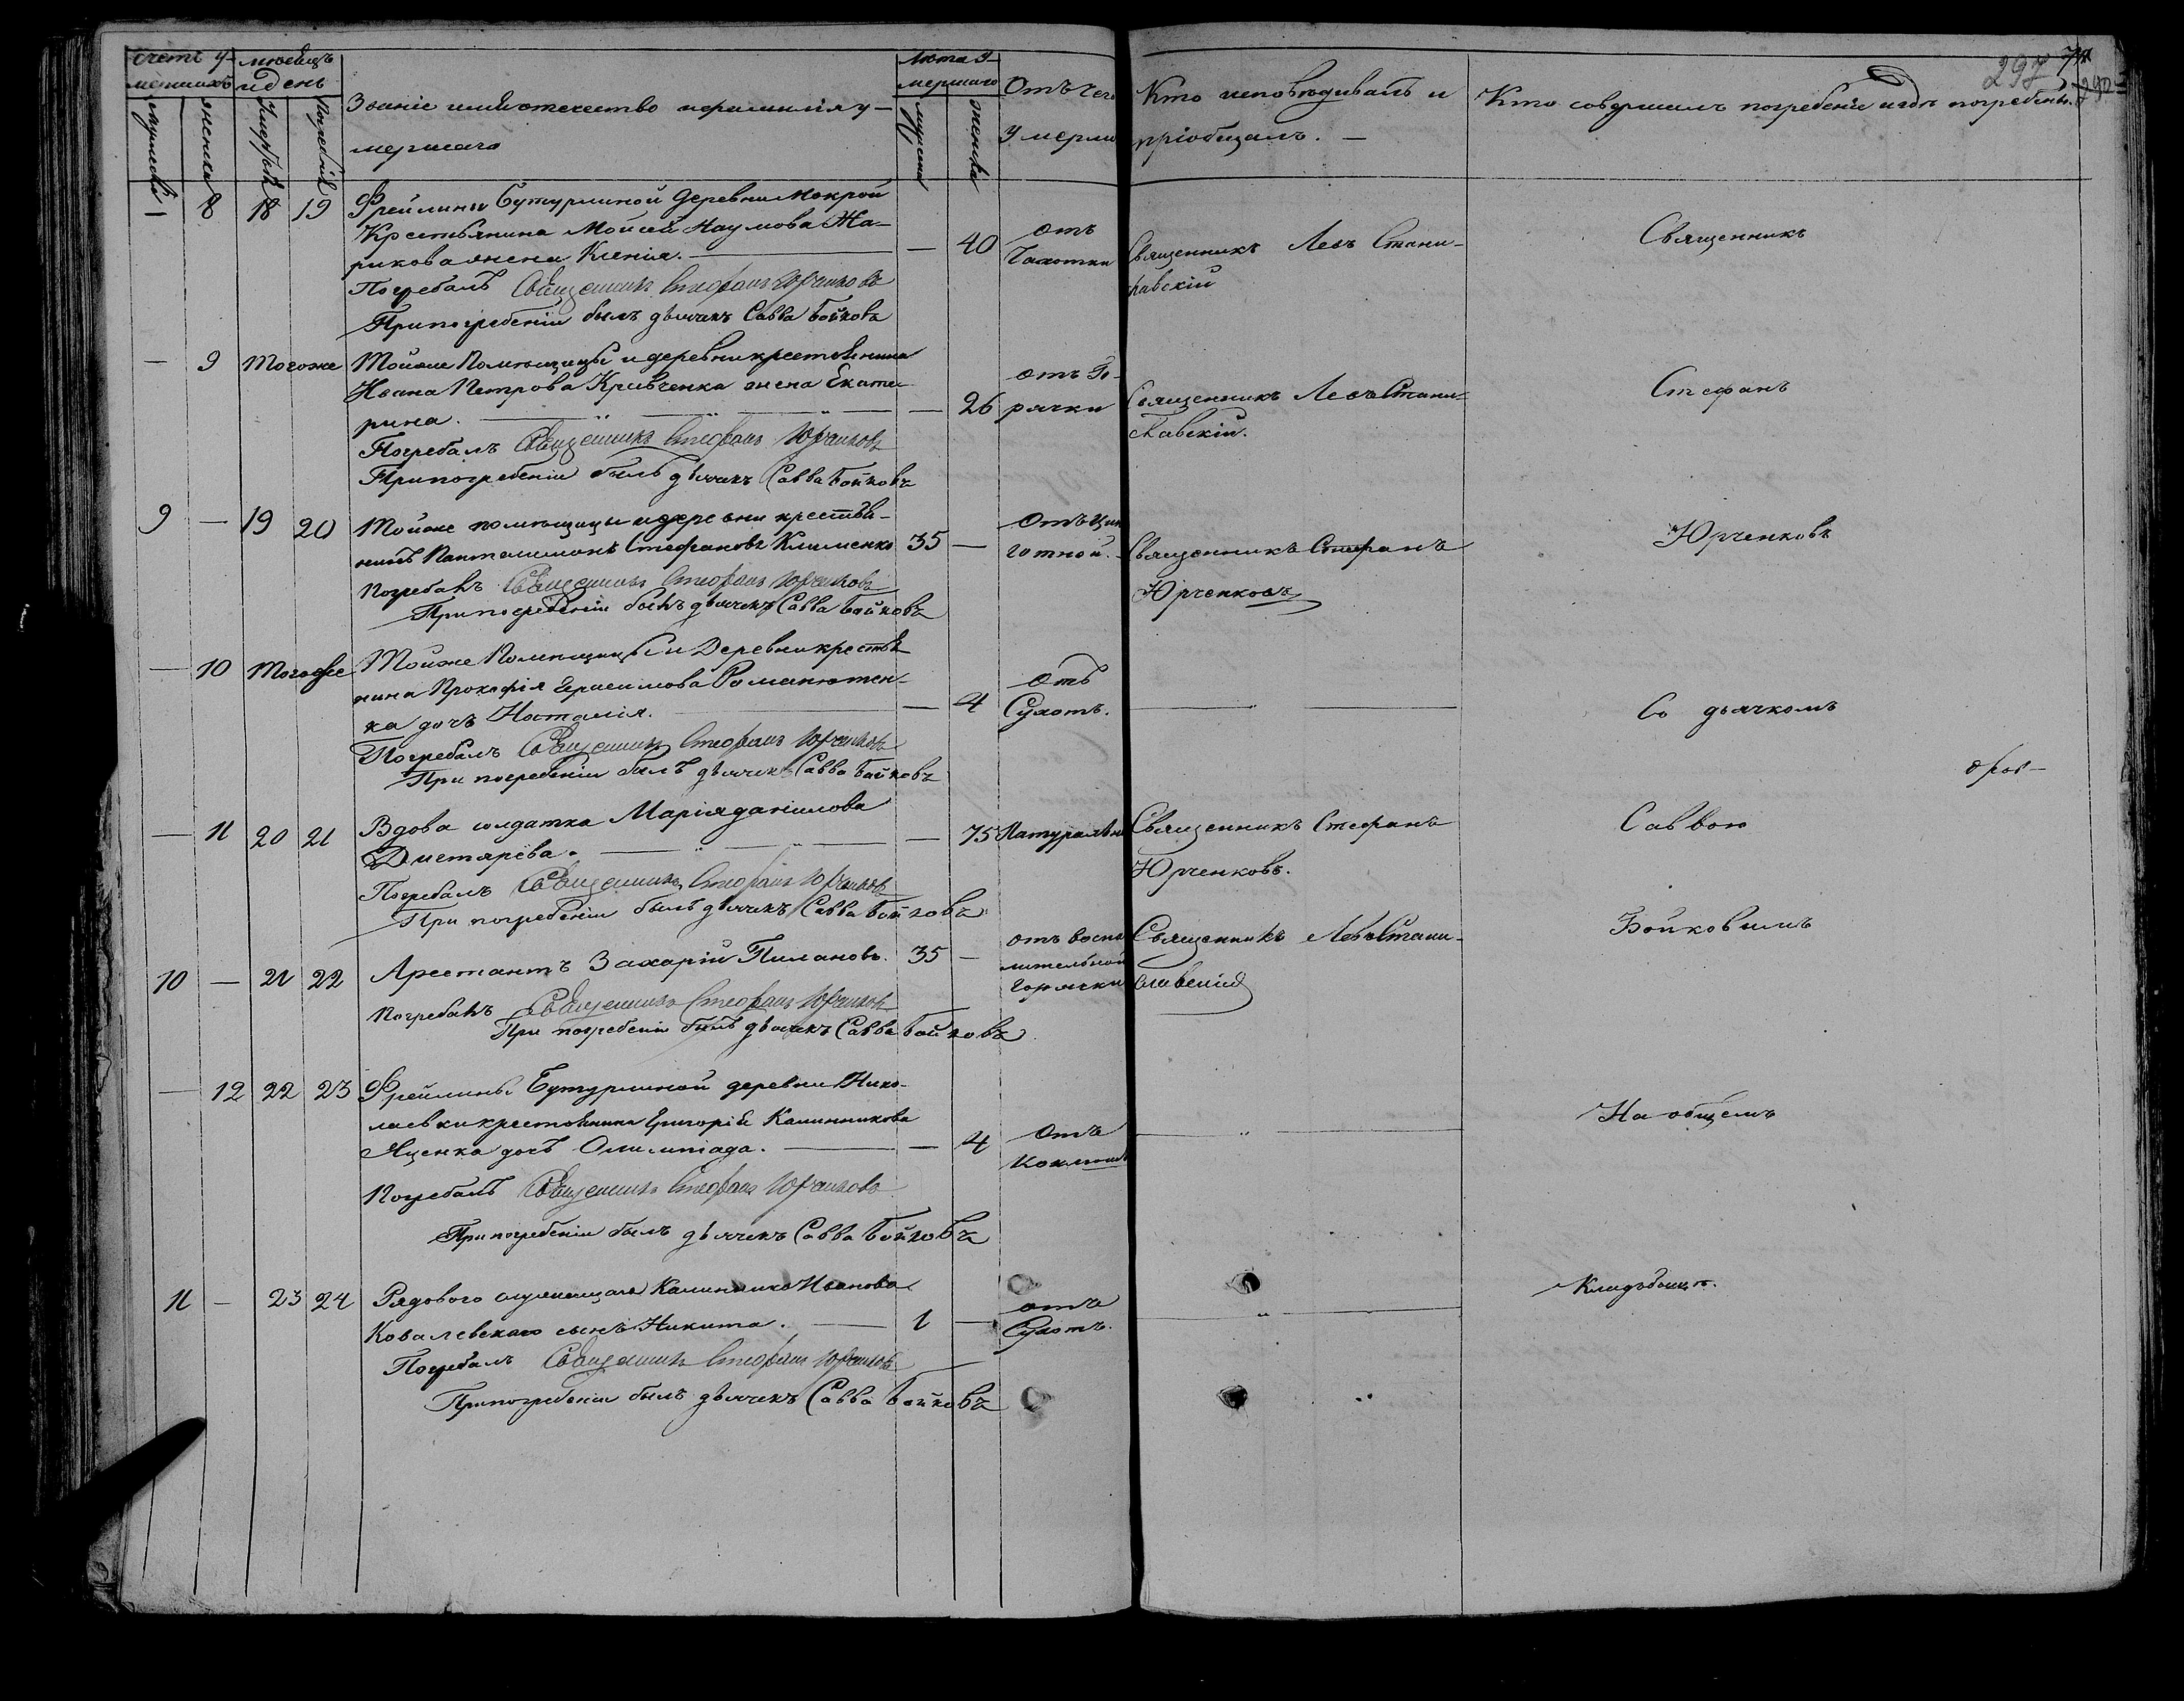 счетъ у- мѣсяцъ
мершихъ и день
Званіе имя отечество и фамилія у-
мершаго
лѣта у-
мершаго
Отъ чего
умерли
Кто исповѣдивалъ и
пріобщалъ. —
Кто совершилъ погребеніе и гдѣ погребены.
297
женска
мужеска
женска
8 18 19 Фрейлины Бутурлиной деревни Мокрой
Крестьянина Моисей Наумова Жа-
рикова жена Ксенія. — — 40 отъ Чахотки
Священникъ Левъ Стани-
славскій
Погребалъ Священникъ Стефанъ Юрченковъ
При погребеніи былъ дьячекъ Савва Бойковъ
— 9 Тогоже Тойже Помѣщицы и деревни крестьянина
Ивана Петрова Кривченка жена Екате-
рина. — 26 отъ Го-
рячки
Священникъ Левъ Стани-
славскій.
Погребалъ Священникъ Стефанъ Юрченковъ
При погребеніи былъ дьячекъ Савва Бойковъ
9 — 19 20 Тойже помѣщицы и деревни крестья-
нинъ Пантелимонъ Стефановъ Клименко 35 —
Отъ цин
готной.
Священникъ Стефанъ
Юрченковъ
Погребалъ Священникъ Стефанъ Юрченковъ
При погребеніи былъ дьячекъ Савва Бойковъ
— 10 Тогоже Тойже Помѣщицы и Деревни крестья-
нина Прокофія Герасимова Романютен-
ка дочь Наталія. — 4 Отъ
Сухотъ.
Погребалъ Священникъ Стефанъ Юрченковъ
При погребеніи былъ дьячекъ Савва Бойковъ
— 11 20 21 Вдова солдатка Марія Данiилова
Дистярева. — 75 Натуральн
Священникъ Стефанъ
Юрченковъ.
Погребалъ Священникъ Стефанъ Юрченковъ
При погребеніи былъ дьячекъ Савва Бойковъ
10 — 21 22 Арестантъ Захарій Пилановъ. 35 —
отъ воспа
лительной
горячки
Священникъ Левъ Стани-
славскій
Погребалъ Священникъ Стефанъ Юрченковъ
При погребеніи былъ дьячекъ Савва Бойковъ
— 12 22 23 Фрейлины Бутурлиной деревни Нико-
лаевки крестьянина Григорія Калинникова
Яценка дочь Олимпіада. — 4 Отъ
Коклюш
Погребалъ Священникъ Стефанъ Юрченковъ
При погребеніи былъ дьячекъ Савва Бойковъ
11 — 23 24 Рядового служащаго Калинника Иванова
Ковалевскаго сынъ Никита. 1 — отъ
Сухотъ.
Погребалъ Священникъ Стефанъ Юрченковъ
При погребеніи былъ дьячекъ Савва Бойковъ
Священникъ
Стефанъ
Юрченковъ
Со дьячкомъ
Саввою
Бойковымъ
На общемъ
Кладъбищѣ.